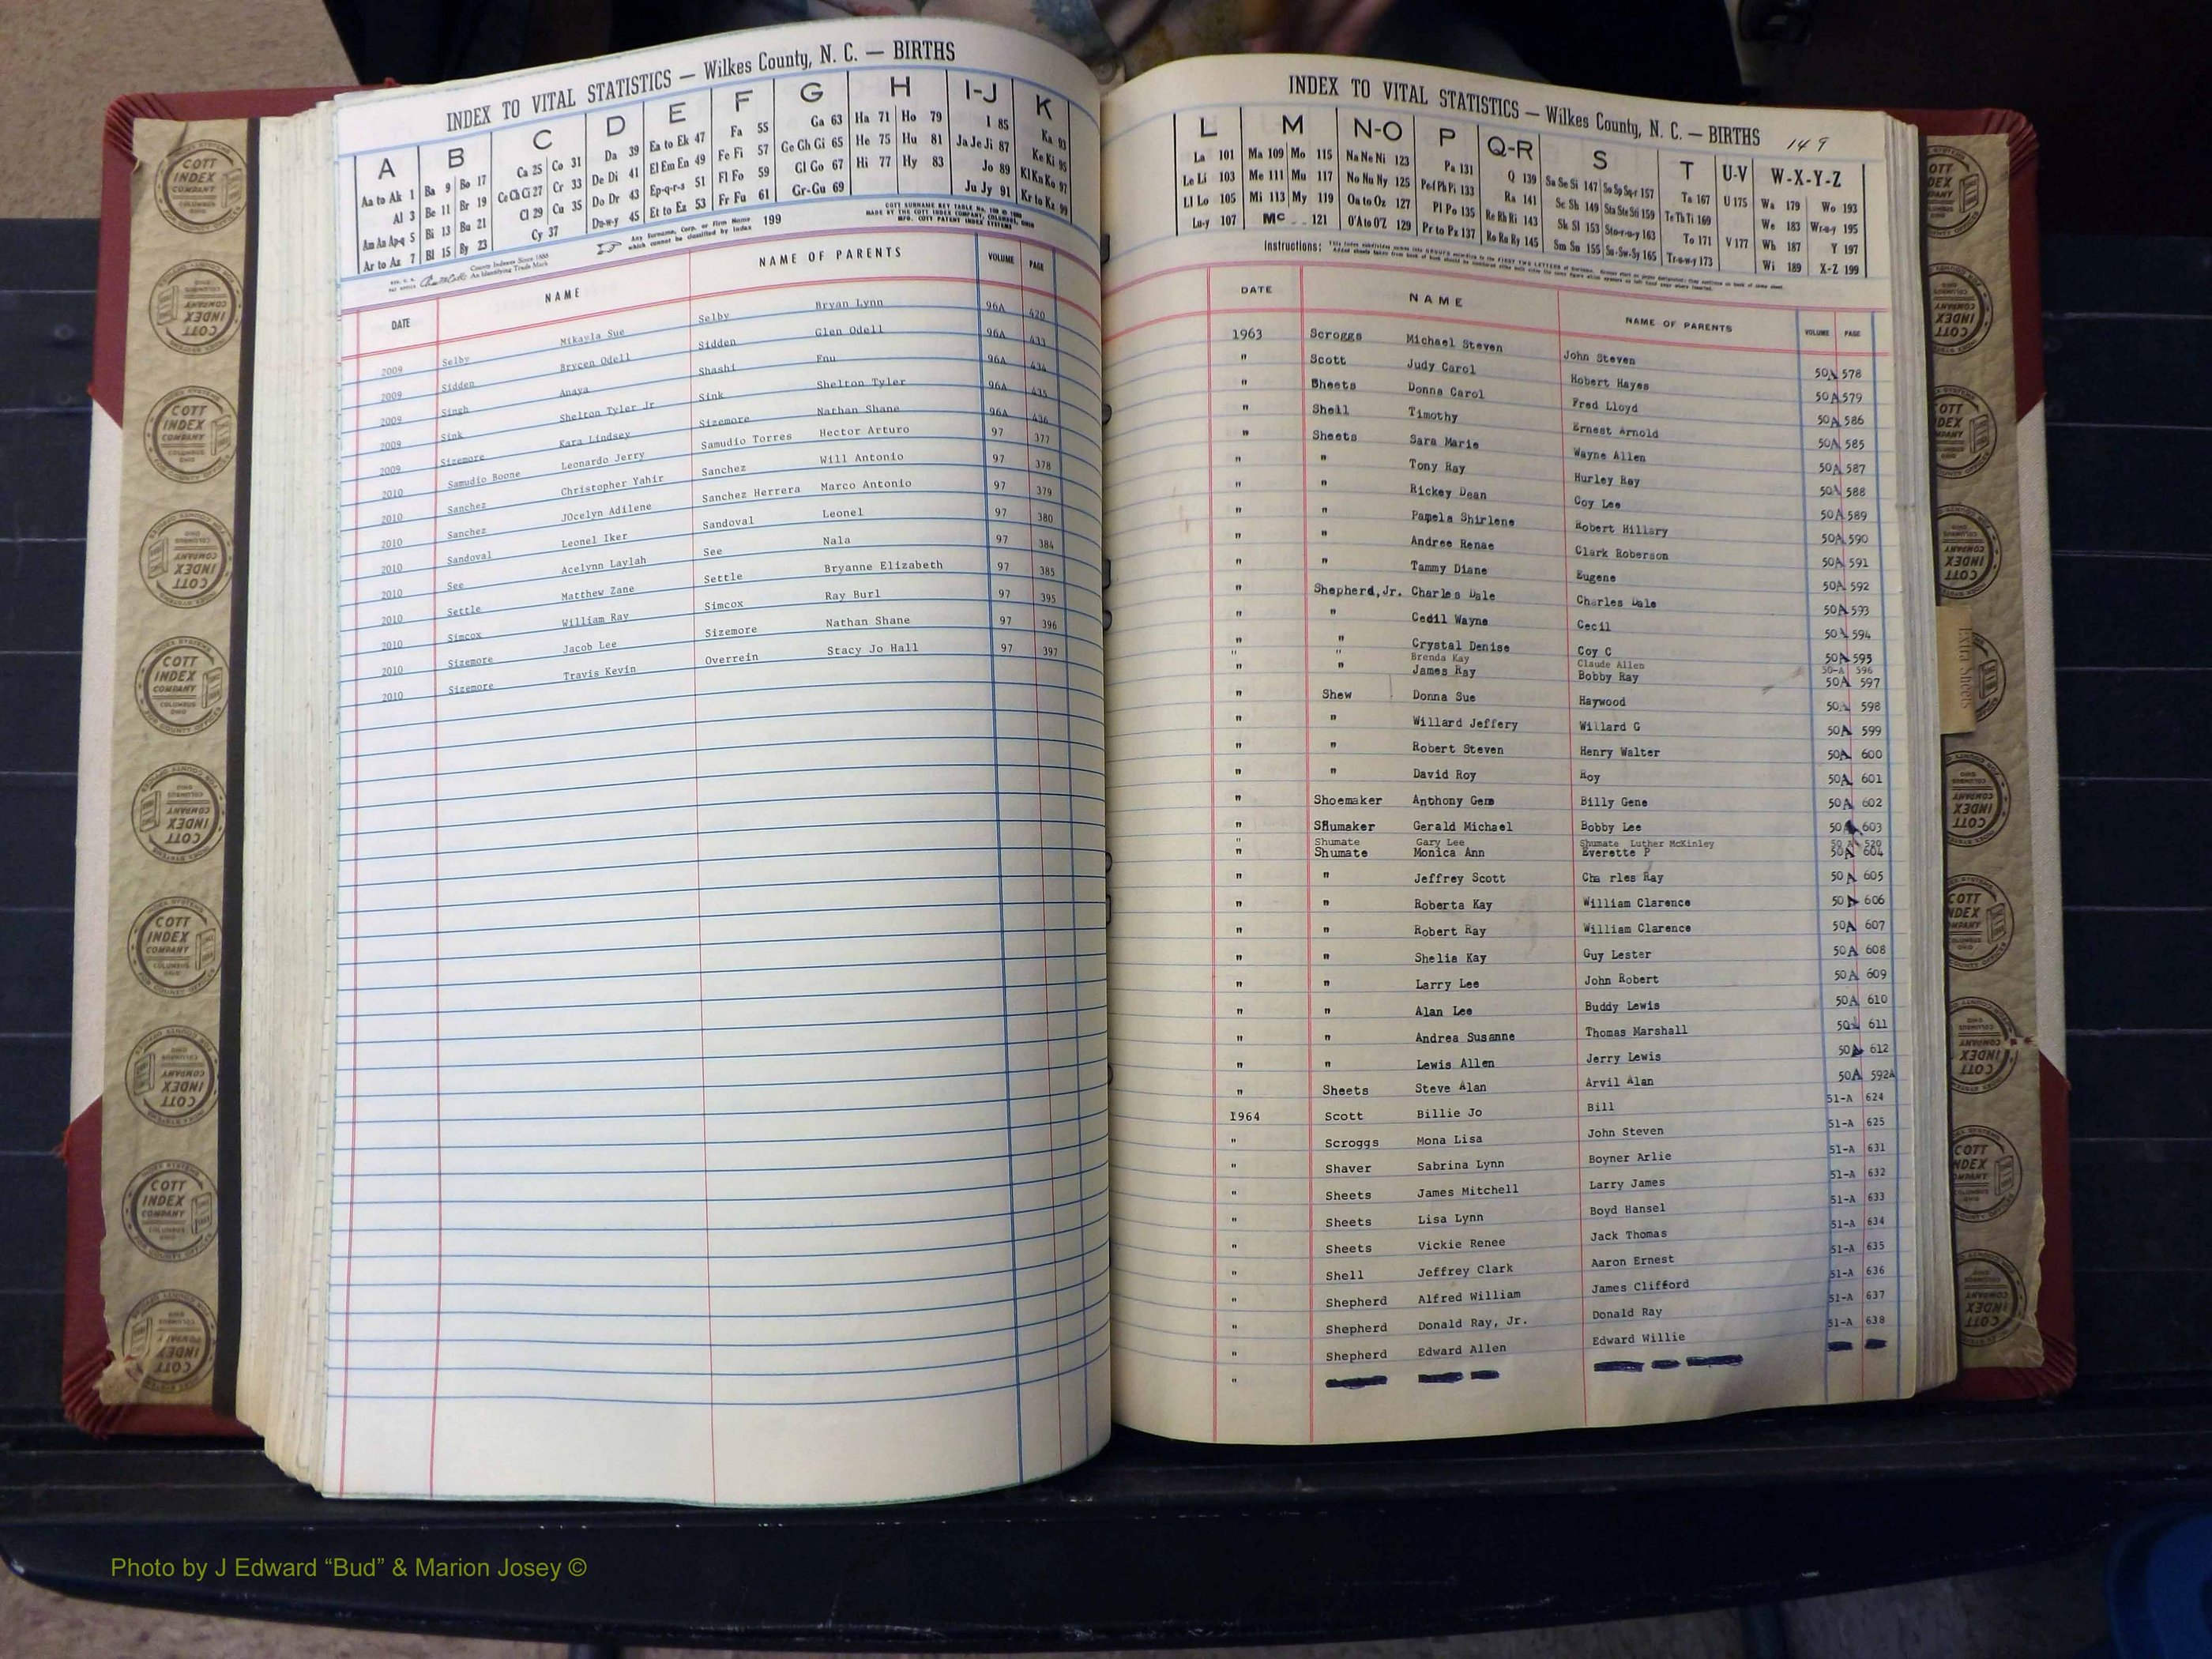 INDEX TO VITAL STATISTICS — Wilkes County, N. C. — BIRTHS
A B C D E F G H I-J K
Aa to Ak 1 Ba 9 Bo 17 Ca 25 Co 31 Da 39 Ea to Ek 47 Fa 55 Ga 63 Ha 71 Ho 79 I 85 Ka 93
Al 3 Be 11 Br 19 Ce Ch Ci 27 Cr 33 De Di 41 El Em En 49 Fe Fi 57 Ge Gh Gi 65 He 75 Hu 81 Ja Je Ji 87 Ke Ki 95
Am An Ap-q 5 Bi 13 Bu 21 Cl 29 Cu 35 Do Dr 43 Ep-q-r-s 51 Fl Fo 59 Gl Go 67 Hi 77 Hy 83 Jo 89 Kl Kn Ko 97
Ar to Az 7 Bl 15 By 23 Cy 37 Du-w-y 45 Et to Ez 53 Fr Fu 61 Gr-Gu 69 Ju Jy 91 Kr to Kz 99
Any Surname, Corp. or Firm Name which cannot be classified by Index 199
COTT SURNAME KEY TABLE No.
MADE BY THE COTT INDEX COMPANY, COLUMBUS, OHIO
County Indexes Since 1888
An Identifying Trade Mark
DATE NAME NAME OF PARENTS VOLUME PAGE
2009 Selby Mikayla Sue Selby Bryan Lynn 96A 420
2009 Sidden Brycen Odell Sidden Glen Odell 96A 433
2009 Singh Anaya Shashi Fnu 96A 434
2009 Sink Shelton Tyler Jr Sink Shelton Tyler 96A 435
2009 Sizemore Kara Lindsey Sizemore Nathan Shane 96A 436
2010 Samudio Boone Leonardo Jerry Samudio Torres Hector Arturo 97 377
2010 Sanchez Christopher Yahir Sanchez Will Antonio 97 378
2010 Sanchez JOcelyn Adilene Sanchez Herrera Marco Antonio 97 379
2010 Sandoval Leonel Iker Sandoval Leonel 97 380
2010 See Acelynn Laylah See Nala 97 384
2010 Settle Matthew Zane Settle Bryanne Elizabeth 97 385
2010 Simcox William Ray Simcox Ray Burl 97 395
2010 Sizemore Jacob Lee Sizemore Nathan Shane 97 396
2010 Sizemore Travis Kevin Overrein Stacy Jo Hall 97 397
INDEX TO VITAL STATISTICS — Wilkes County, N. C. — BIRTHS 149
L M N-O P Q-R S T U-V W-X-Y-Z
La 101 Ma 109 Mo 115 Na Ne Ni 123 Pa 131 Q 139 Sa Se Si 147 So Sp Sq-r 157 Ta 167 U 175 Wa 179 Wo 193
Le Li 103 Me 111 Mu 117 No Nu Ny 125 Pe-f Ph Pi 133 Ra 141 Sc Sh 149 Sta Ste Sti 159 Te Th Ti 169 We 183 Wr-u-y 195
Ll Lo 105 Mi 113 My 119 Oa to Oz 127 Pl Po 135 Re Rh Ri 143 Sk Sl 153 Sto-r-u-y 163 To 171 V 177 Wh 187 Y 197
Lu-y 107 Mc 121 O'A to O'Z 129 Pr to Pz 137 Ro Ru Ry 145 Sm Sn 155 Su-Sw-Sy 165 Tr-u-w-y 173 Wi 189 X-Z 199
Instructions:
DATE NAME NAME OF PARENTS VOLUME PAGE
1963 Scroggs Michael Steven John Steven 50A 578
" Scott Judy Carol Robert Hayes 50A 579
" Sheets Donna Carol Fred Lloyd 50A 586
" Shell Timothy Ernest Arnold 50A 585
" Sheets Sara Marie Wayne Allen 50A 587
" " Tony Ray Hurley Ray 50A 588
" " Rickey Dean Coy Lee 50A 589
" " Pamela Shirlene Robert Hillary 50A 590
" " Andree Renae Clark Roberson 50A 591
" " Tammy Diane Eugene 50A 592
" Shepherd, Jr. Charles Dale Charles Dale 50A 593
" " Cedil Wayne Cecil 50A 594
" " Crystal Denise Coy C 50A 595
" " Brenda Kay Claude Allen 50-A 596
" " James Ray Bobby Ray 50A 597
" Shew Donna Sue Haywood 50A 598
" " Willard Jeffery Willard G 50A 599
" " Robert Steven Henry Walter 50A 600
" " David Roy Roy 50A 601
" Shoemaker Anthony Gene Billy Gene 50A 602
" SHumaker Gerald Michael Bobby Lee 50A 603
" Shumate Gary Lee Shumate Luther McKinley 50 A 520
" Shumate Monica Ann Everette P 50A 604
" " Jeffrey Scott Cha rles Ray 50A 605
" " Roberta Kay William Clarence 50A 606
" " Robert Ray William Clarence 50A 607
" " Shelia Kay Guy Lester 50A 608
" " Larry Lee John Robert 50A 609
" " Alan Lee Buddy Lewis 50A 610
" " Andrea Susanne Thomas Marshall 50A 611
" " Lewis Allen Jerry Lewis 50A 612
" Sheets Steve Alan Arvil Alan 50A 592A
1964 Scott Billie Jo Bill 51-A 624
" Scroggs Mona Lisa John Steven 51-A 625
" Shaver Sabrina Lynn Boyner Arlie 51-A 631
" Sheets James Mitchell Larry James 51-A 632
" Sheets Lisa Lynn Boyd Hansel 51-A 633
" Sheets Vickie Renee Jack Thomas 51-A 634
" Shell Jeffrey Clark Aaron Ernest 51-A 635
" Shepherd Alfred William James Clifford 51-A 636
" Shepherd Donald Ray, Jr. Donald Ray 51-A 637
" Shepherd Edward Allen Edward Willie 51-A 638
"
Extra Sheets
COTT INDEX COMPANY COLUMBUS OHIO
Photo by J Edward “Bud” & Marion Josey ©